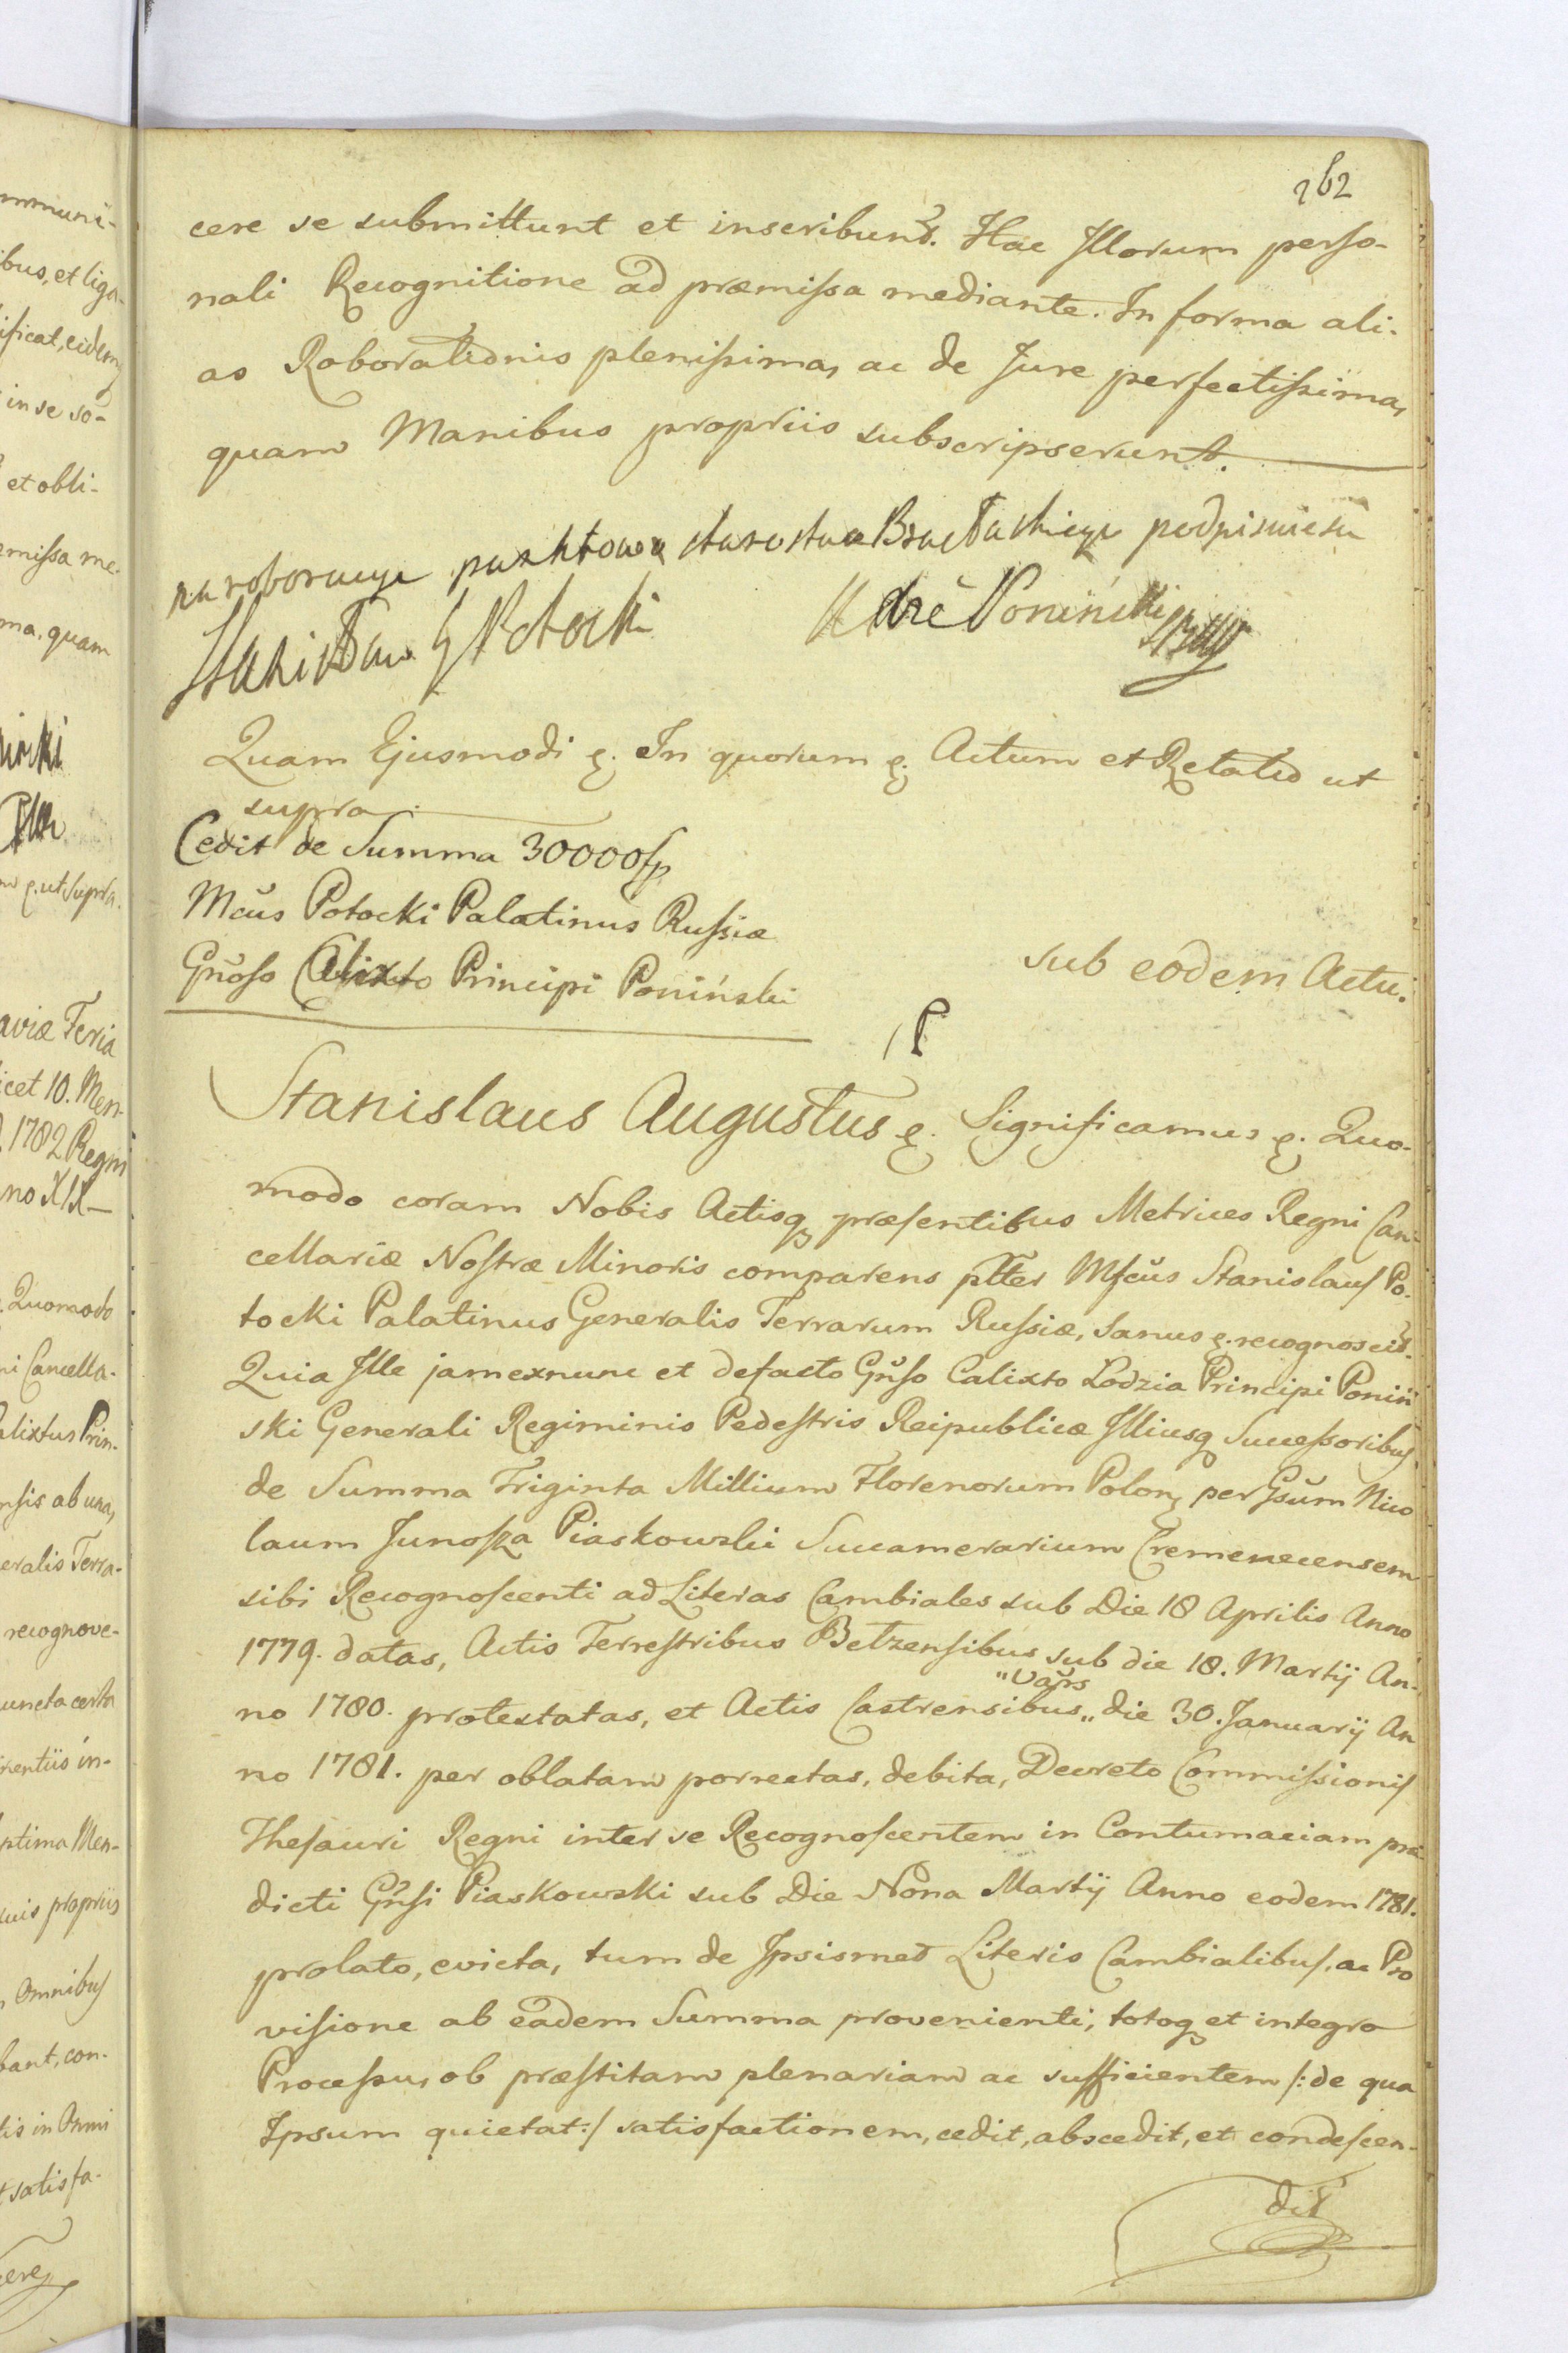 262
cere se submittunt et inscribunt. Hac Illorum perso-
nali Recognitione ad præmissa mediante. In forma ali-
as Roborationis plenissima, ac de Jure perfectissima,
quam Manibus propriis subscripserunt.
na roboracyę punktowa starostwa Bracławskiego podpisuię się
Stanisław Potocki
Poniński
Quam Ejusmodi ę. In quorum ę. Actum et Relatio ut
supra.
Cedit de Summa 30000 fp
Mcus Potocki Palatinus Russiæ
Gnoso Calixto Principi Poniński
sub eodem Actu.
Stanislaus Augustus ę. Significamus ę. Quo-
modo coram Nobis Actisq præsentibus Metrices Regni Can-
cellariæ Nostræ Minoris comparens pltter Mfcus Stanislaus Po-
tocki Palatinus Generalis Terrarum Russiæ, Sanus ę. recognoscit.
Quia Ille jam exnunc et defacto Gnso Calixto Lodzia Principi Poniń
ski Generali Regiminis Pedestris Reipublicæ Illiusq Successoribus
de Summa Triginta Millium Florenorum Polon per Gsum Nico
laum Junosza Piaskowski Succamerarium Cremenecensem
sibi Recognoscenti ad Literas Cambiales sub Die 18 Aprilis Anno
1779. datas, Actis Terrestribus Betzensibus sub die 18. Martij An-
no 1780. protestatas, et Actis Castrensibus „Vars„ die 30. Januarij An
no 1781. per oblatam porrectas, debita, Decreto Commissionis
Thesauri Regni inter se Recognoscentem in Contumaciam præ
dicti Gnsi Piaskowski sub Die Nona Martij Anno eodem 1781.
prolato, evicta, tum de Ipsismet Literis Cambialibus, ac Pro
visione ab eadem Summa provenienti, totoq et integro
Processu, ob præstitam plenariam ac sufficientem /: de qua
Ipsum quietat :/ satisfactionem, cedit, abscedit, et condescen-
dit